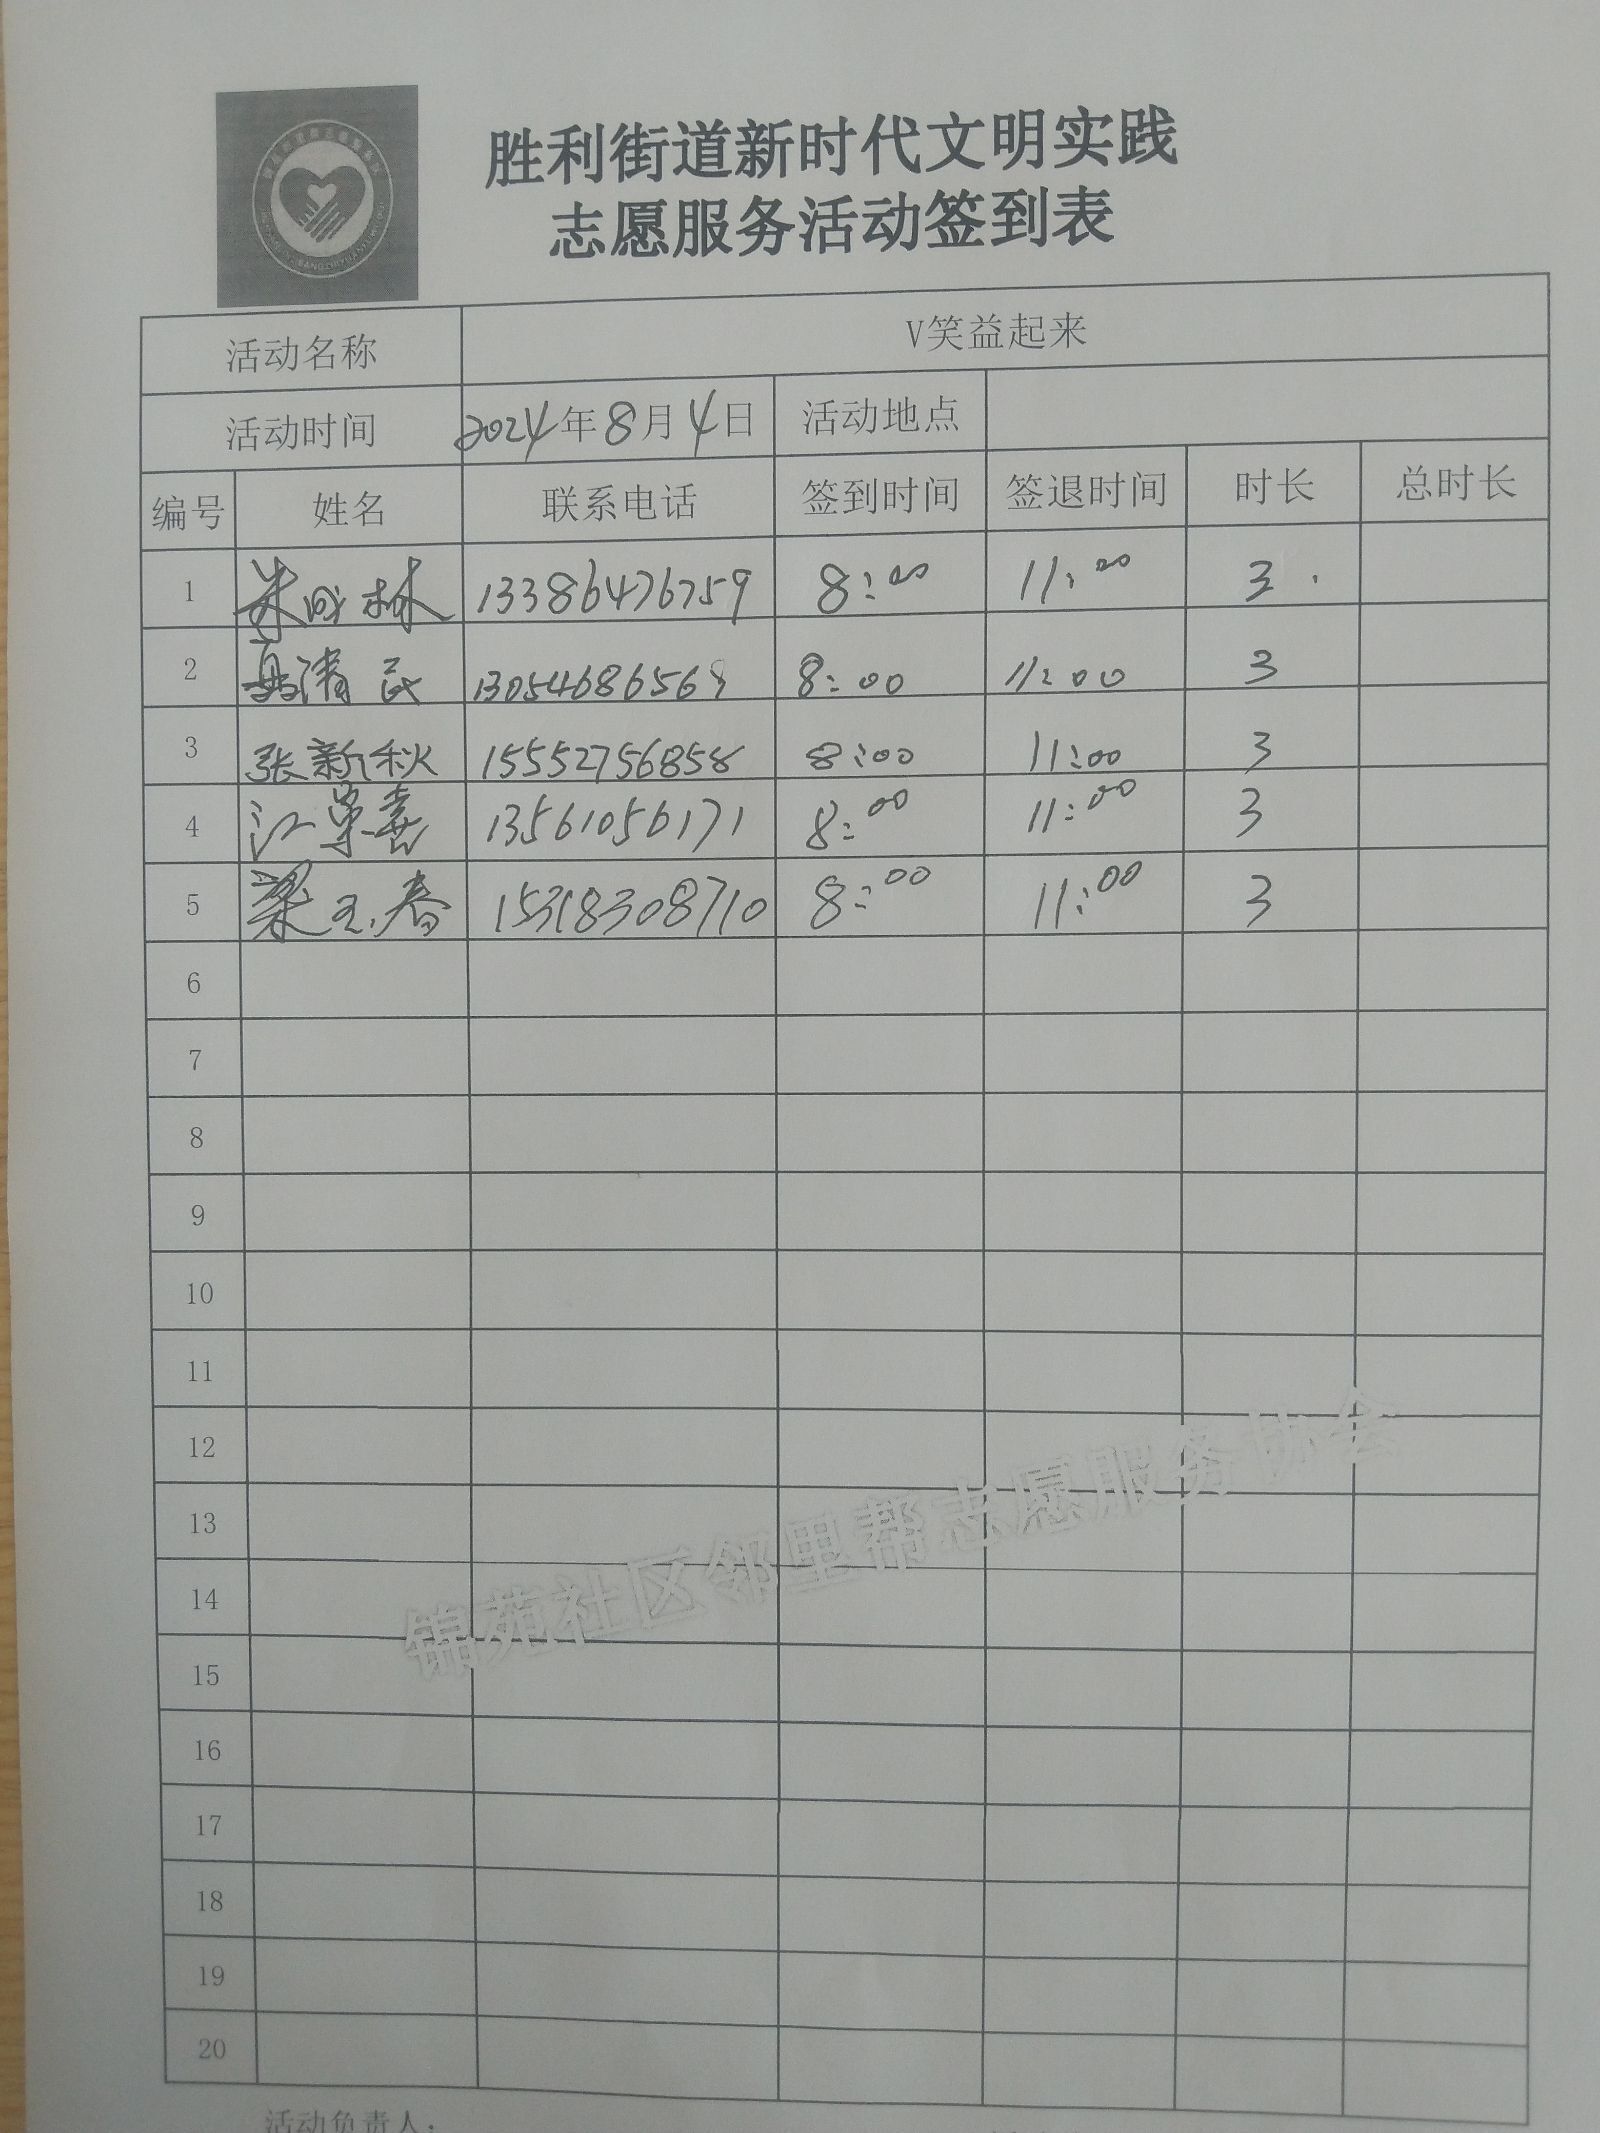 胜利街道新时代文明实践
志愿服务活动签到表
活动名称 V笑益起来
活动时间 2024年8月4日 活动地点
编号 姓名 联系电话 签到时间 签退时间 时长 总时长
1 朱成林 13386476759 8:00 11:00 3
2 清 1305468656 8:00 11:00 3
3 张新秋 15552756858 8:00 11:00 3
4 江 喜 13561056171 8:00 11:00 3
5 梁玉春 15318308710 8:00 11:00 3
6
7
8
9
10
11
12
13
14
15
16
17
18
19
20
锦苑社区邻里帮志愿服务协会
活动负责人: